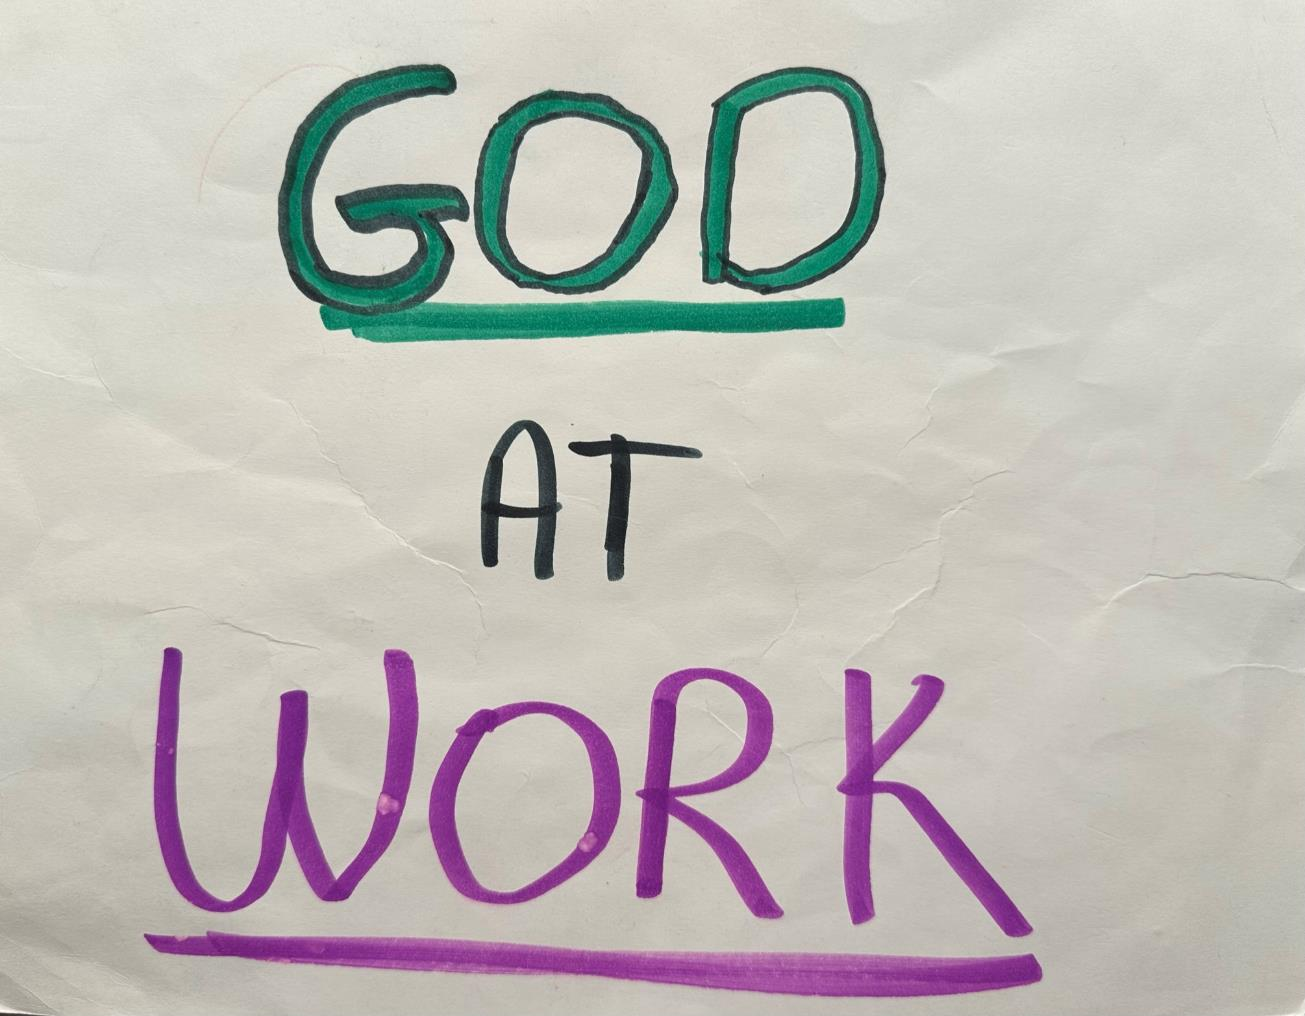 GOD
AT
WORK